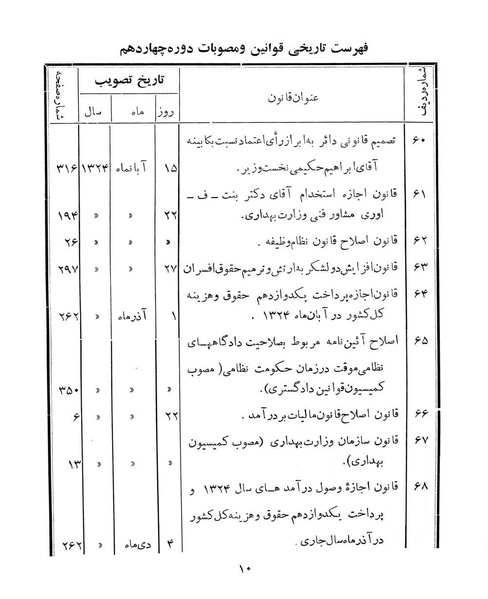 فهرست تاریخی قوانین ومصوبات دوره چهاردهم
شماره ردیف عنوان قانون تاریخ تصویب شماره صفحه
روز ماه سال
۶۰ تصمیم قانونی دائر به ابراز رأی اعتماد نسبت بکابینه
آقای ابراهیم حکیمی نخست وزیر. ۱۵ آبانماه ۱۳۲۴ ۳۱۶
۶۱ قانون اجازه استخدام آقای دکتر بنت ـ ف ـ
اوری مشاور فنی وزارت بهداری. ۲۲ » » ۱۹۴
۶۲ قانون اصلاح قانون نظام وظیفه . » » » ۲۶
۶۳ قانون افزایش دو لشکر به ارتش و ترمیم حقوق افسران ۲۷ » » ۲۹۷
۶۴ قانون اجازه پرداخت یکدوازدهم حقوق وهزینه
کل کشور در آبان ماه ۱۳۲۴ . ۱ آذرماه » ۲۶۲
۶۵ اصلاح آئین نامه مربوط بصلاحیت دادگاههای
نظامی موقت در زمان حکومت نظامی (مصوب
کمیسیون قوانین دادگستری). » » » ۳۵۰
۶۶ قانون اصلاح قانون مالیات بر درآمد . ۲۲ » » ۶
۶۷ قانون سازمان وزارت بهداری (مصوب کمیسیون
بهداری). » » » ۱۳
۶۸ قانون اجازهٔ وصول درآمد های سال ۱۳۲۴ و
پرداخت یکدوازدهم حقوق و هزینه کل کشور
در آذر ماه سال جاری. ۴ دی ماه » ۲۶۲
۱۰